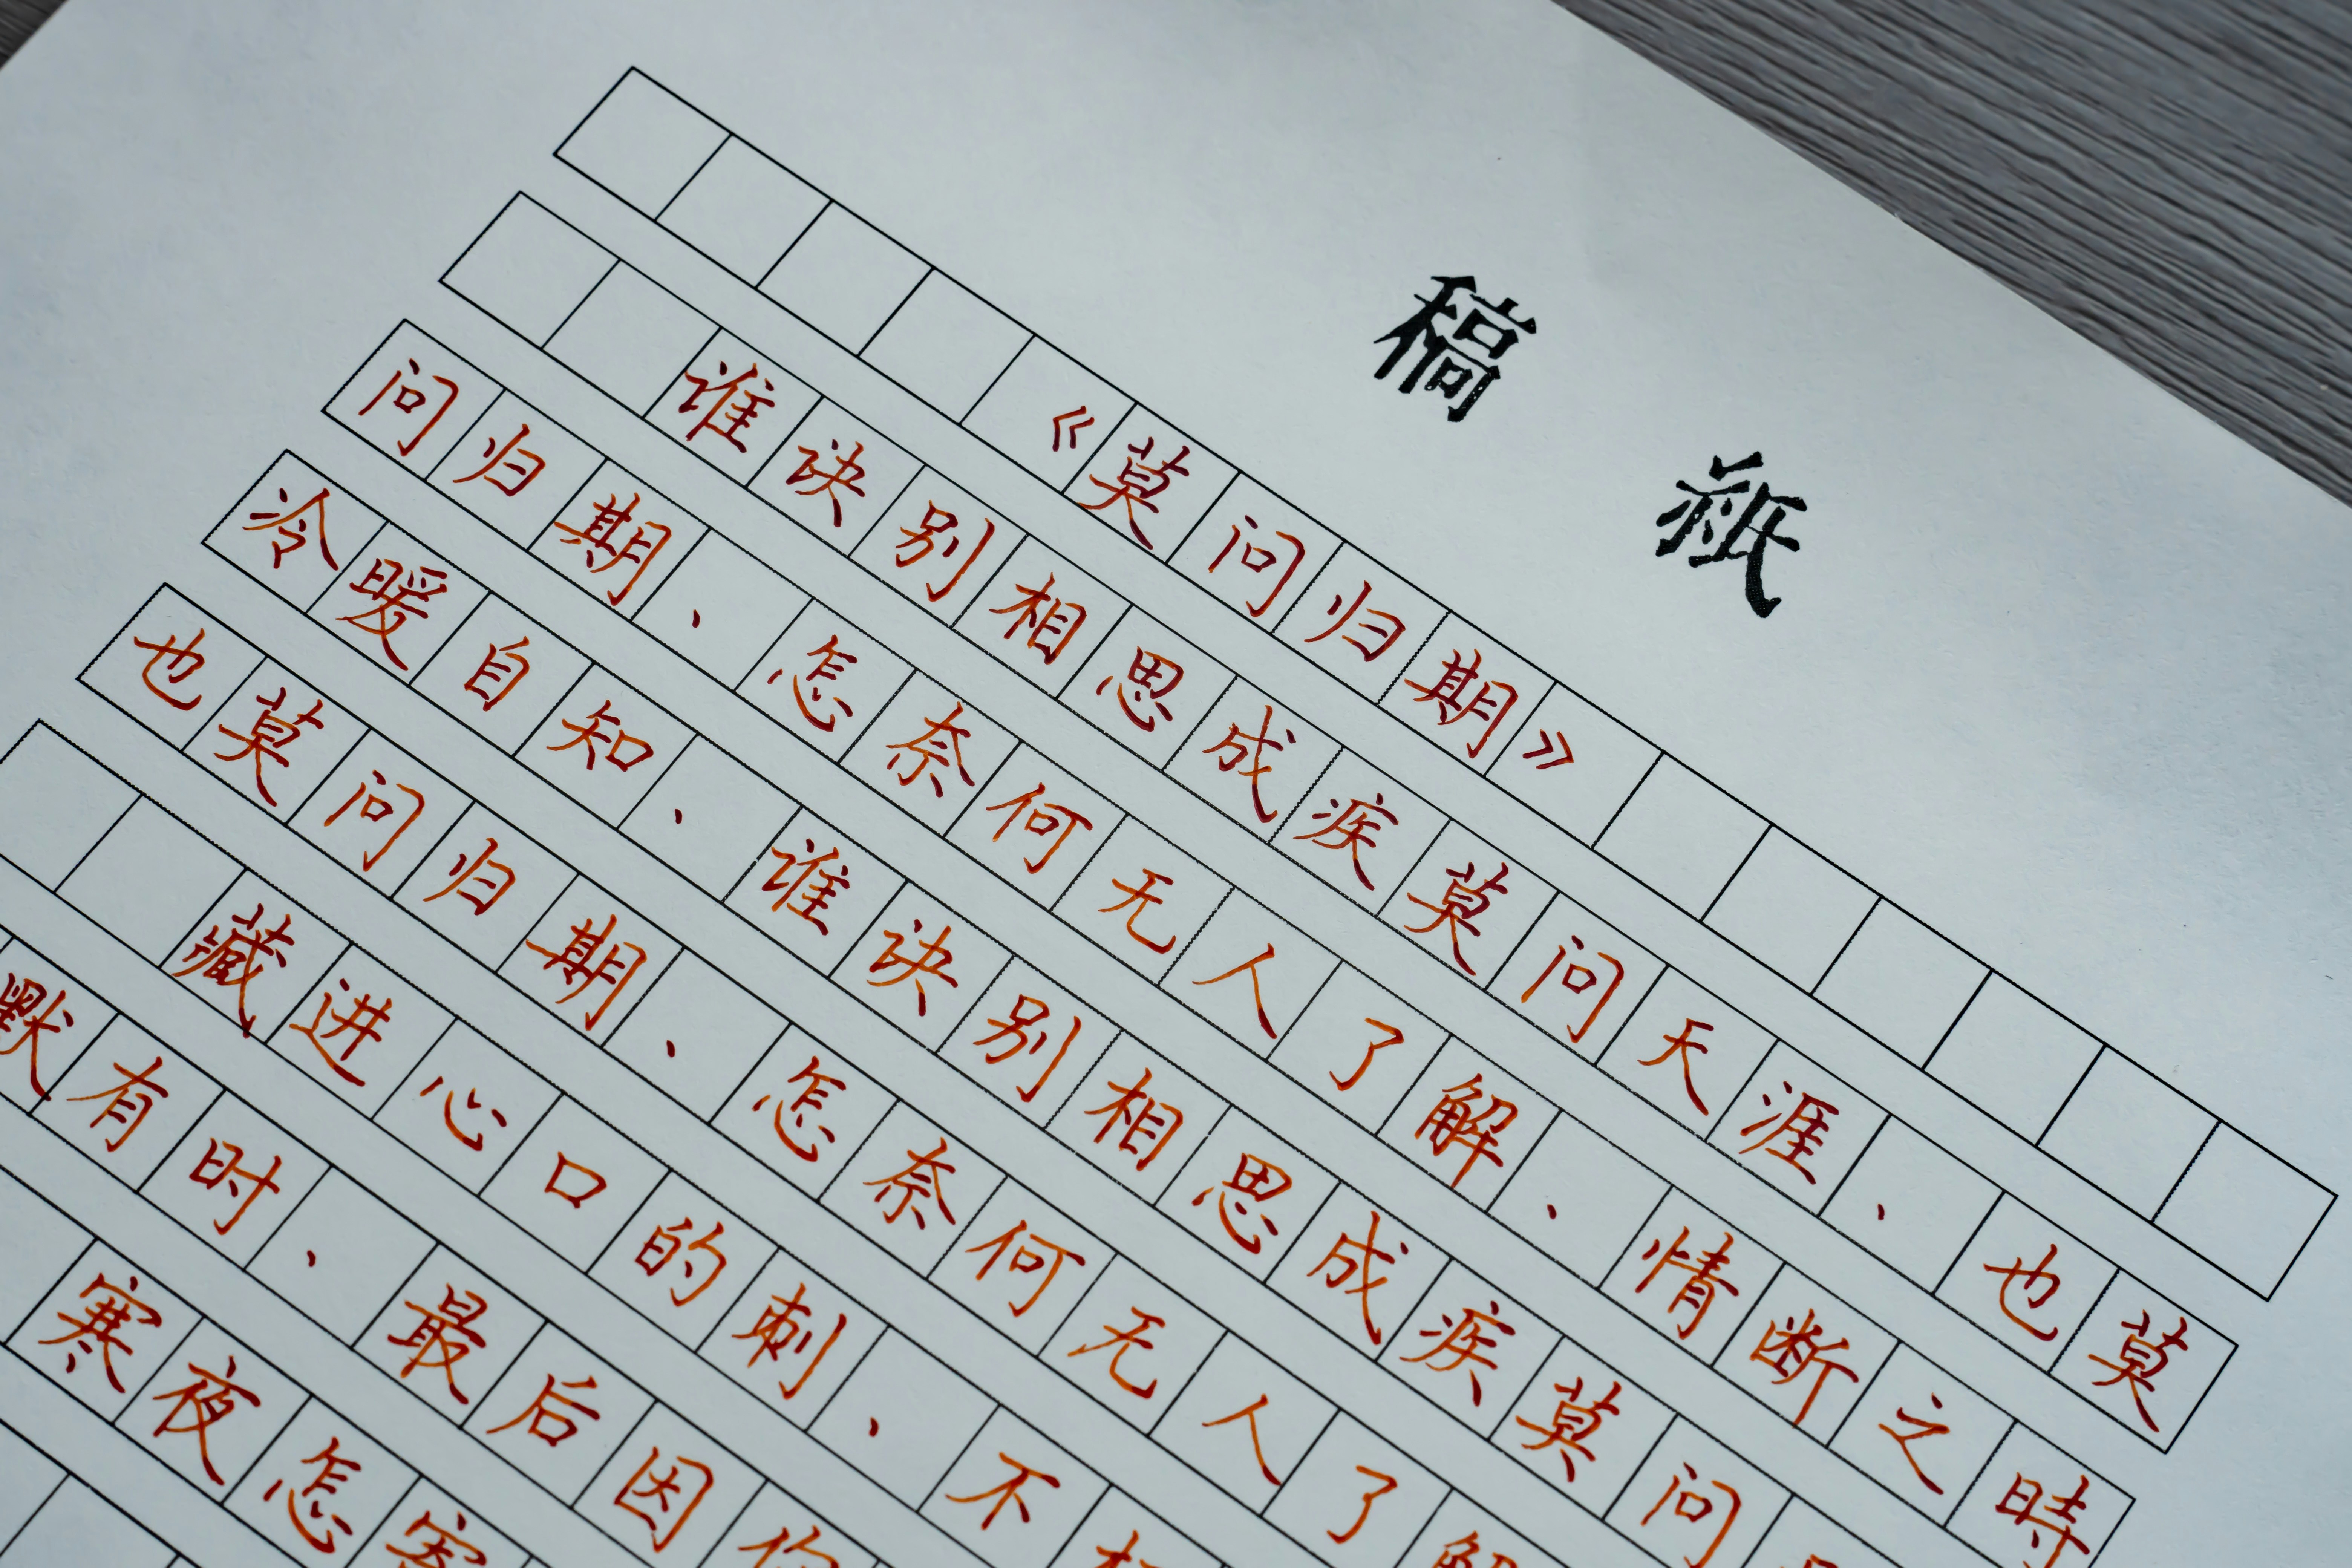 稿紙
《莫问归期》
谁诀别相思成疾莫问天涯、也莫
问归期、怎奈何无人了解、情断之時
冷暖自知、谁诀别相思成疾莫问
也莫问归期、怎奈何无人了解
藏进心口的刺、不
默有时、最后因
寒夜怎